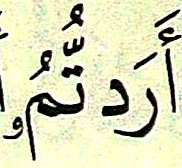 أَرَدتُّمُۥ